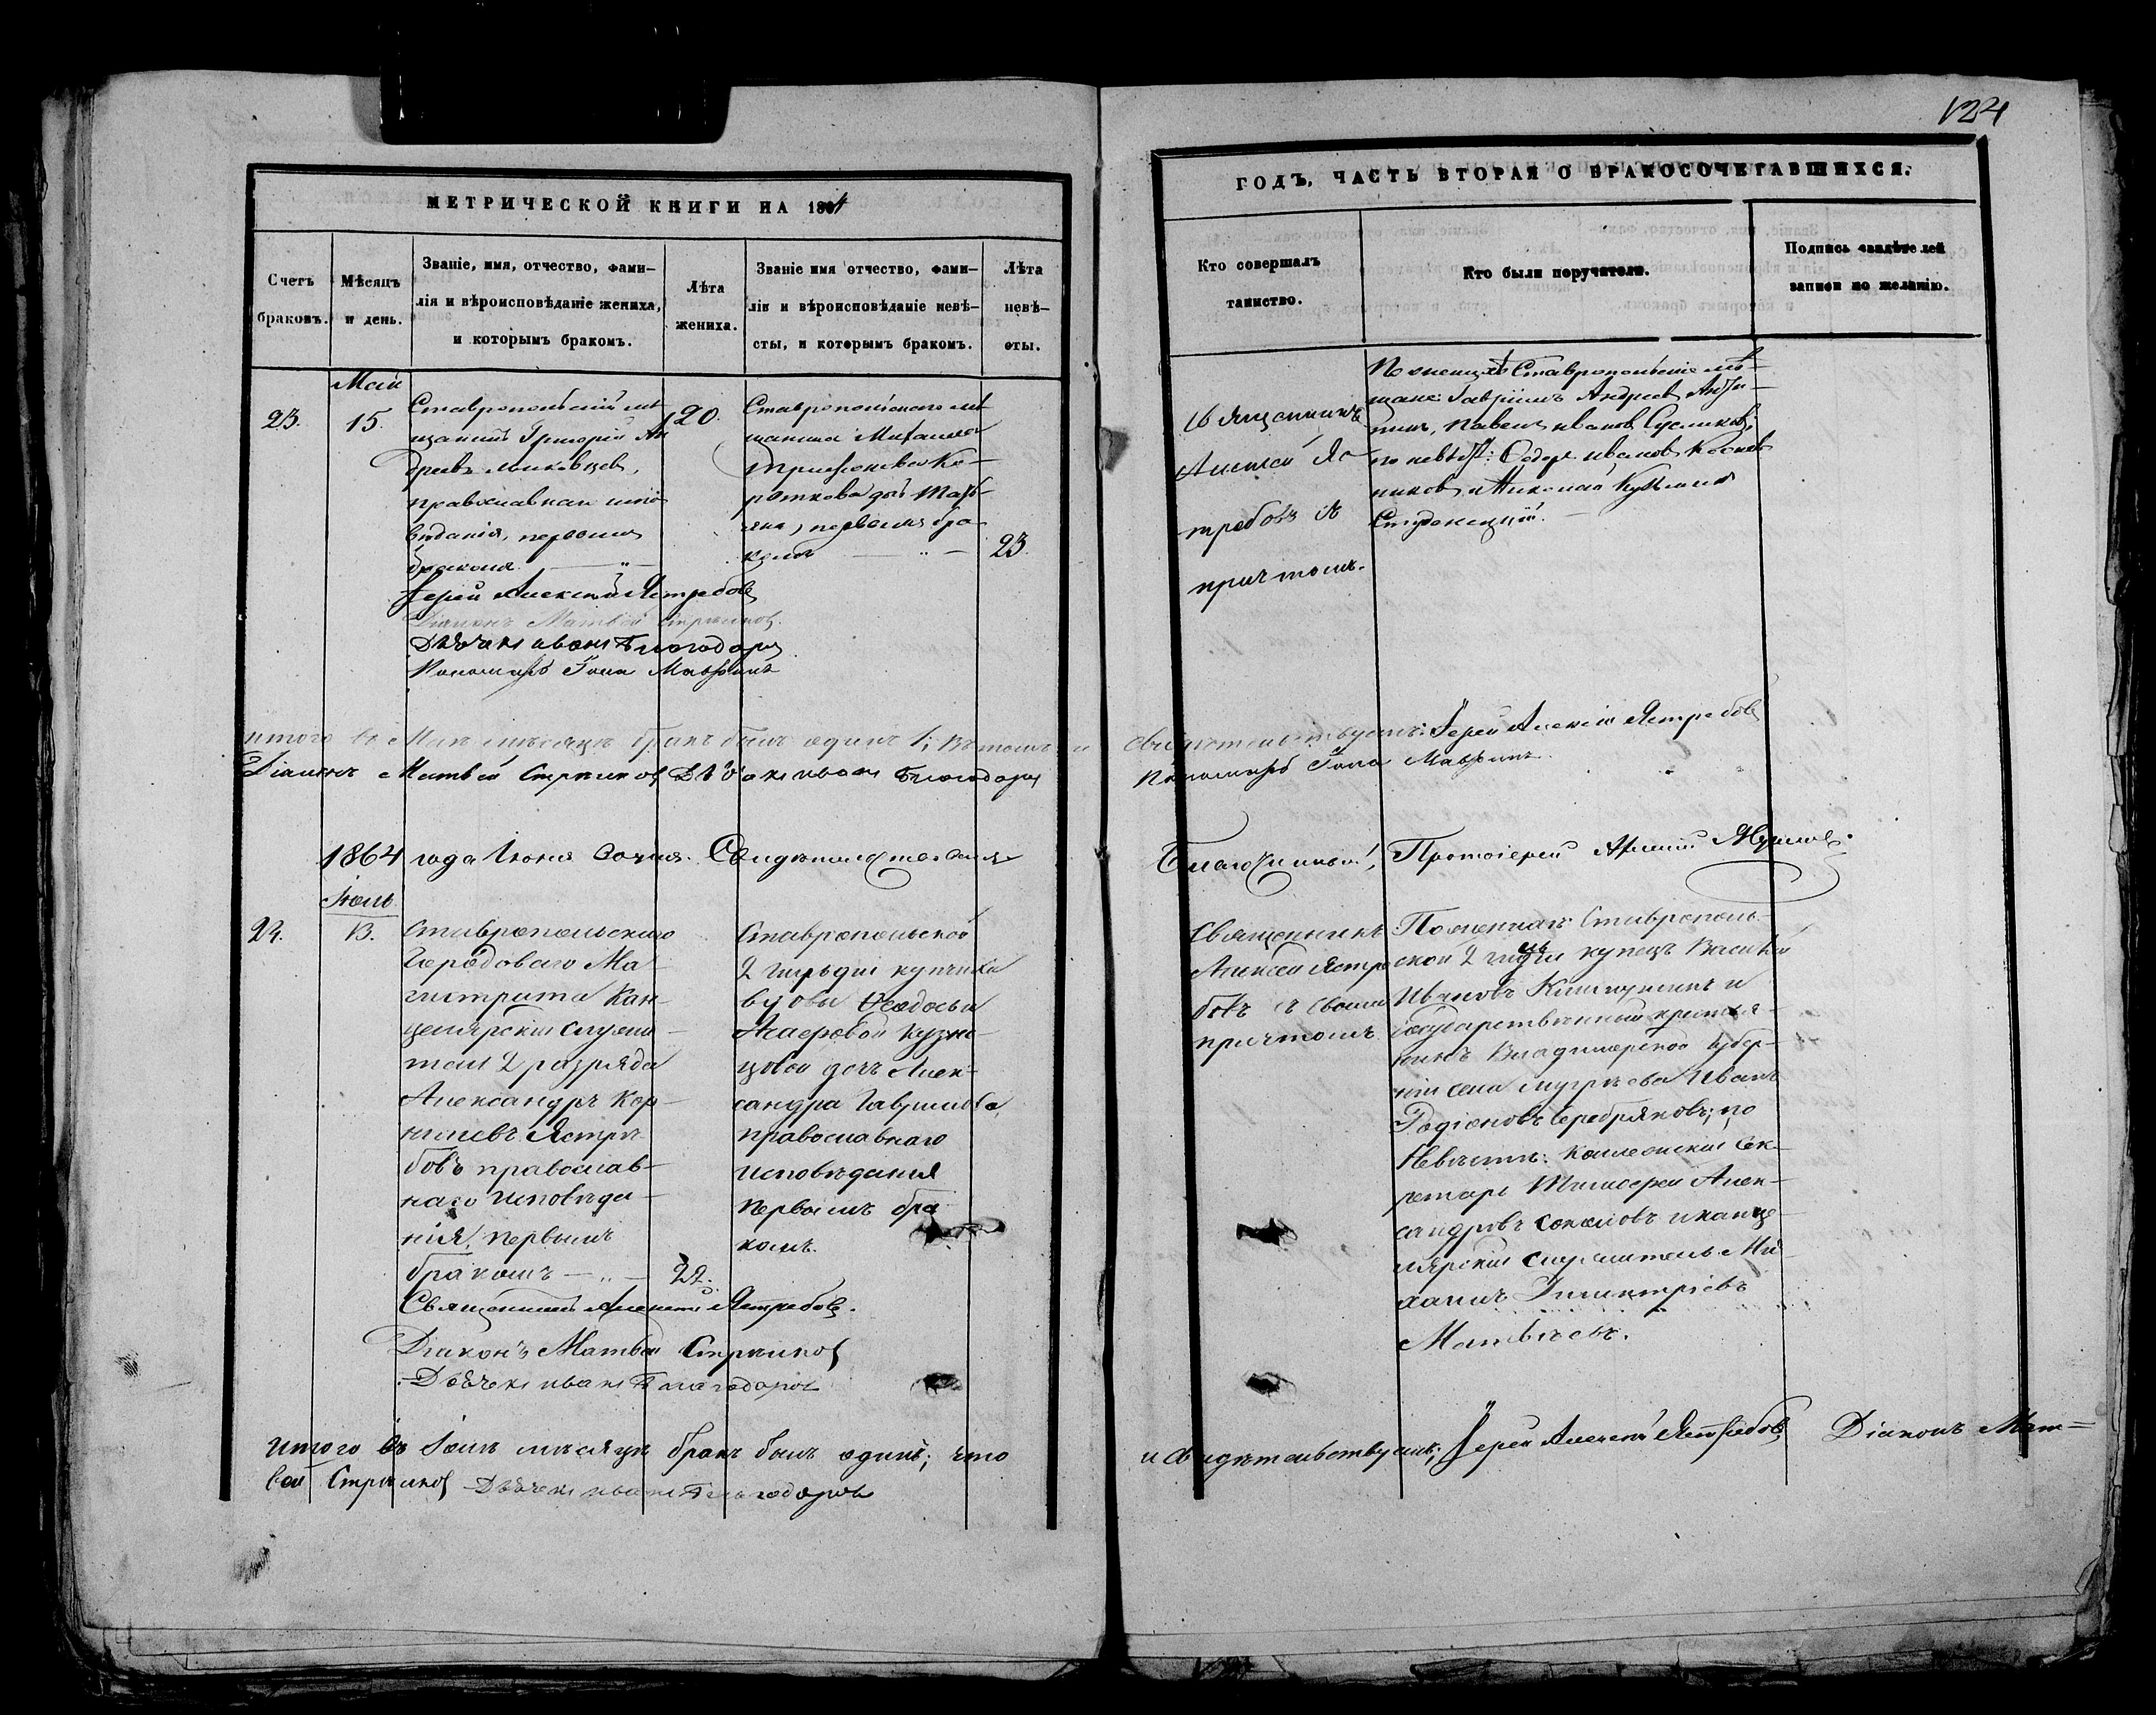 124
МЕТРИЧЕСКОЙ КНИГИ НА 1864
ГОДЪ, ЧАСТЬ ВТОРАЯ О БРАКОСОЧЕТАВШИХСЯ.
Счетъ браковъ.
Мѣсяцъ и день.
Званіе, имя, отчество, фами-
лія и вѣроисповѣданіе жениха,
и которымъ бракомъ.
Лѣта жениха.
Званіе имя отчество, фами-
лія и вѣроисповѣданіе невѣ-
сты, и которымъ бракомъ.
Лѣта невѣ-
сты.
Кто совершалъ
таинство.
Кто были поручители.
Подпись свидѣтелей
записи по желанію.
Май
23.
15.
Ставропольскій мѣ-
щанинъ Григорій Ан
дреевъ
православнаго испо
вѣданія, первымъ
бракомъ
20.
Ставропольскаго мѣ
щанина Михаила
дочь
первымъ бра
комъ
23.
Священникъ
Алексей Яс
требовъ съ
причтомъ.
По женихѣ Ставропольскіе мѣ-
щане: Гавріилъ Андреев
Павелъ Иванов
по невѣстѣ: Ѳедор Иванов
и Николай
Іерей Алексий Ястребов
Діаконъ Матвей Стрелков
Дьячекъ Иванъ Благодаров
Пономарь Іона Маврин
Итого въ Маѣ мѣсяцѣ бракъ былъ одинъ 1; въ томъ и
свидѣтельствуемъ: Іерей Алексій Ястребов
Діаконъ Матвей Стрелков Дьячекъ Иванъ Благодаров
Пономарь Іона Маврин
1864 года Іюня дня. Свидетельствовалъ
Благочинный, Протоіерей
Іюль
24.
13.
Ставропольскаго
Городоваго Ма-
гистрата Кан-
целярскій служи-
тель 2 разряда
Александръ Кор-
нильевъ Ястре-
бовъ православ-
наго исповѣда-
нія, первымъ
бракомъ
22.
Ставропольской
2 гильдіи купчихи
вдовы Ѳеодосьи
Кузне-
цовой дочь Алек-
сандра Гаврилова
православнаго
исповѣданія
первымъ бра-
комъ.
Священникъ
Алексей Ястре
бовъ съ своимъ
причтомъ
По женихѣ: Ставрополь-
ской 2 гильдіи купецъ Василій
Ивановъ и
Государственный крестья-
нинъ Владимерской губер-
ніи села Иванъ
Родіоновъ Серебряковъ; по
Невѣстѣ: Коллежскій Сек-
ретарь Тимоѳей Алек-
сандровъ Соколовъ и канце-
лярскій служитель Ми-
хаилъ Димитріевъ
Матвѣевъ.
Священникъ Алексей Ястребов.
Діаконъ Матвей Стрелков
Дьячекъ Иванъ Благодаров
Итого въ Іюлѣ мѣсяцѣ бракъ былъ одинъ; что
и свидѣтельствуемъ; Іерей Алексей Ястребов Діаконъ Мат=
вей Стрелков Дьячекъ Иванъ Благодаров